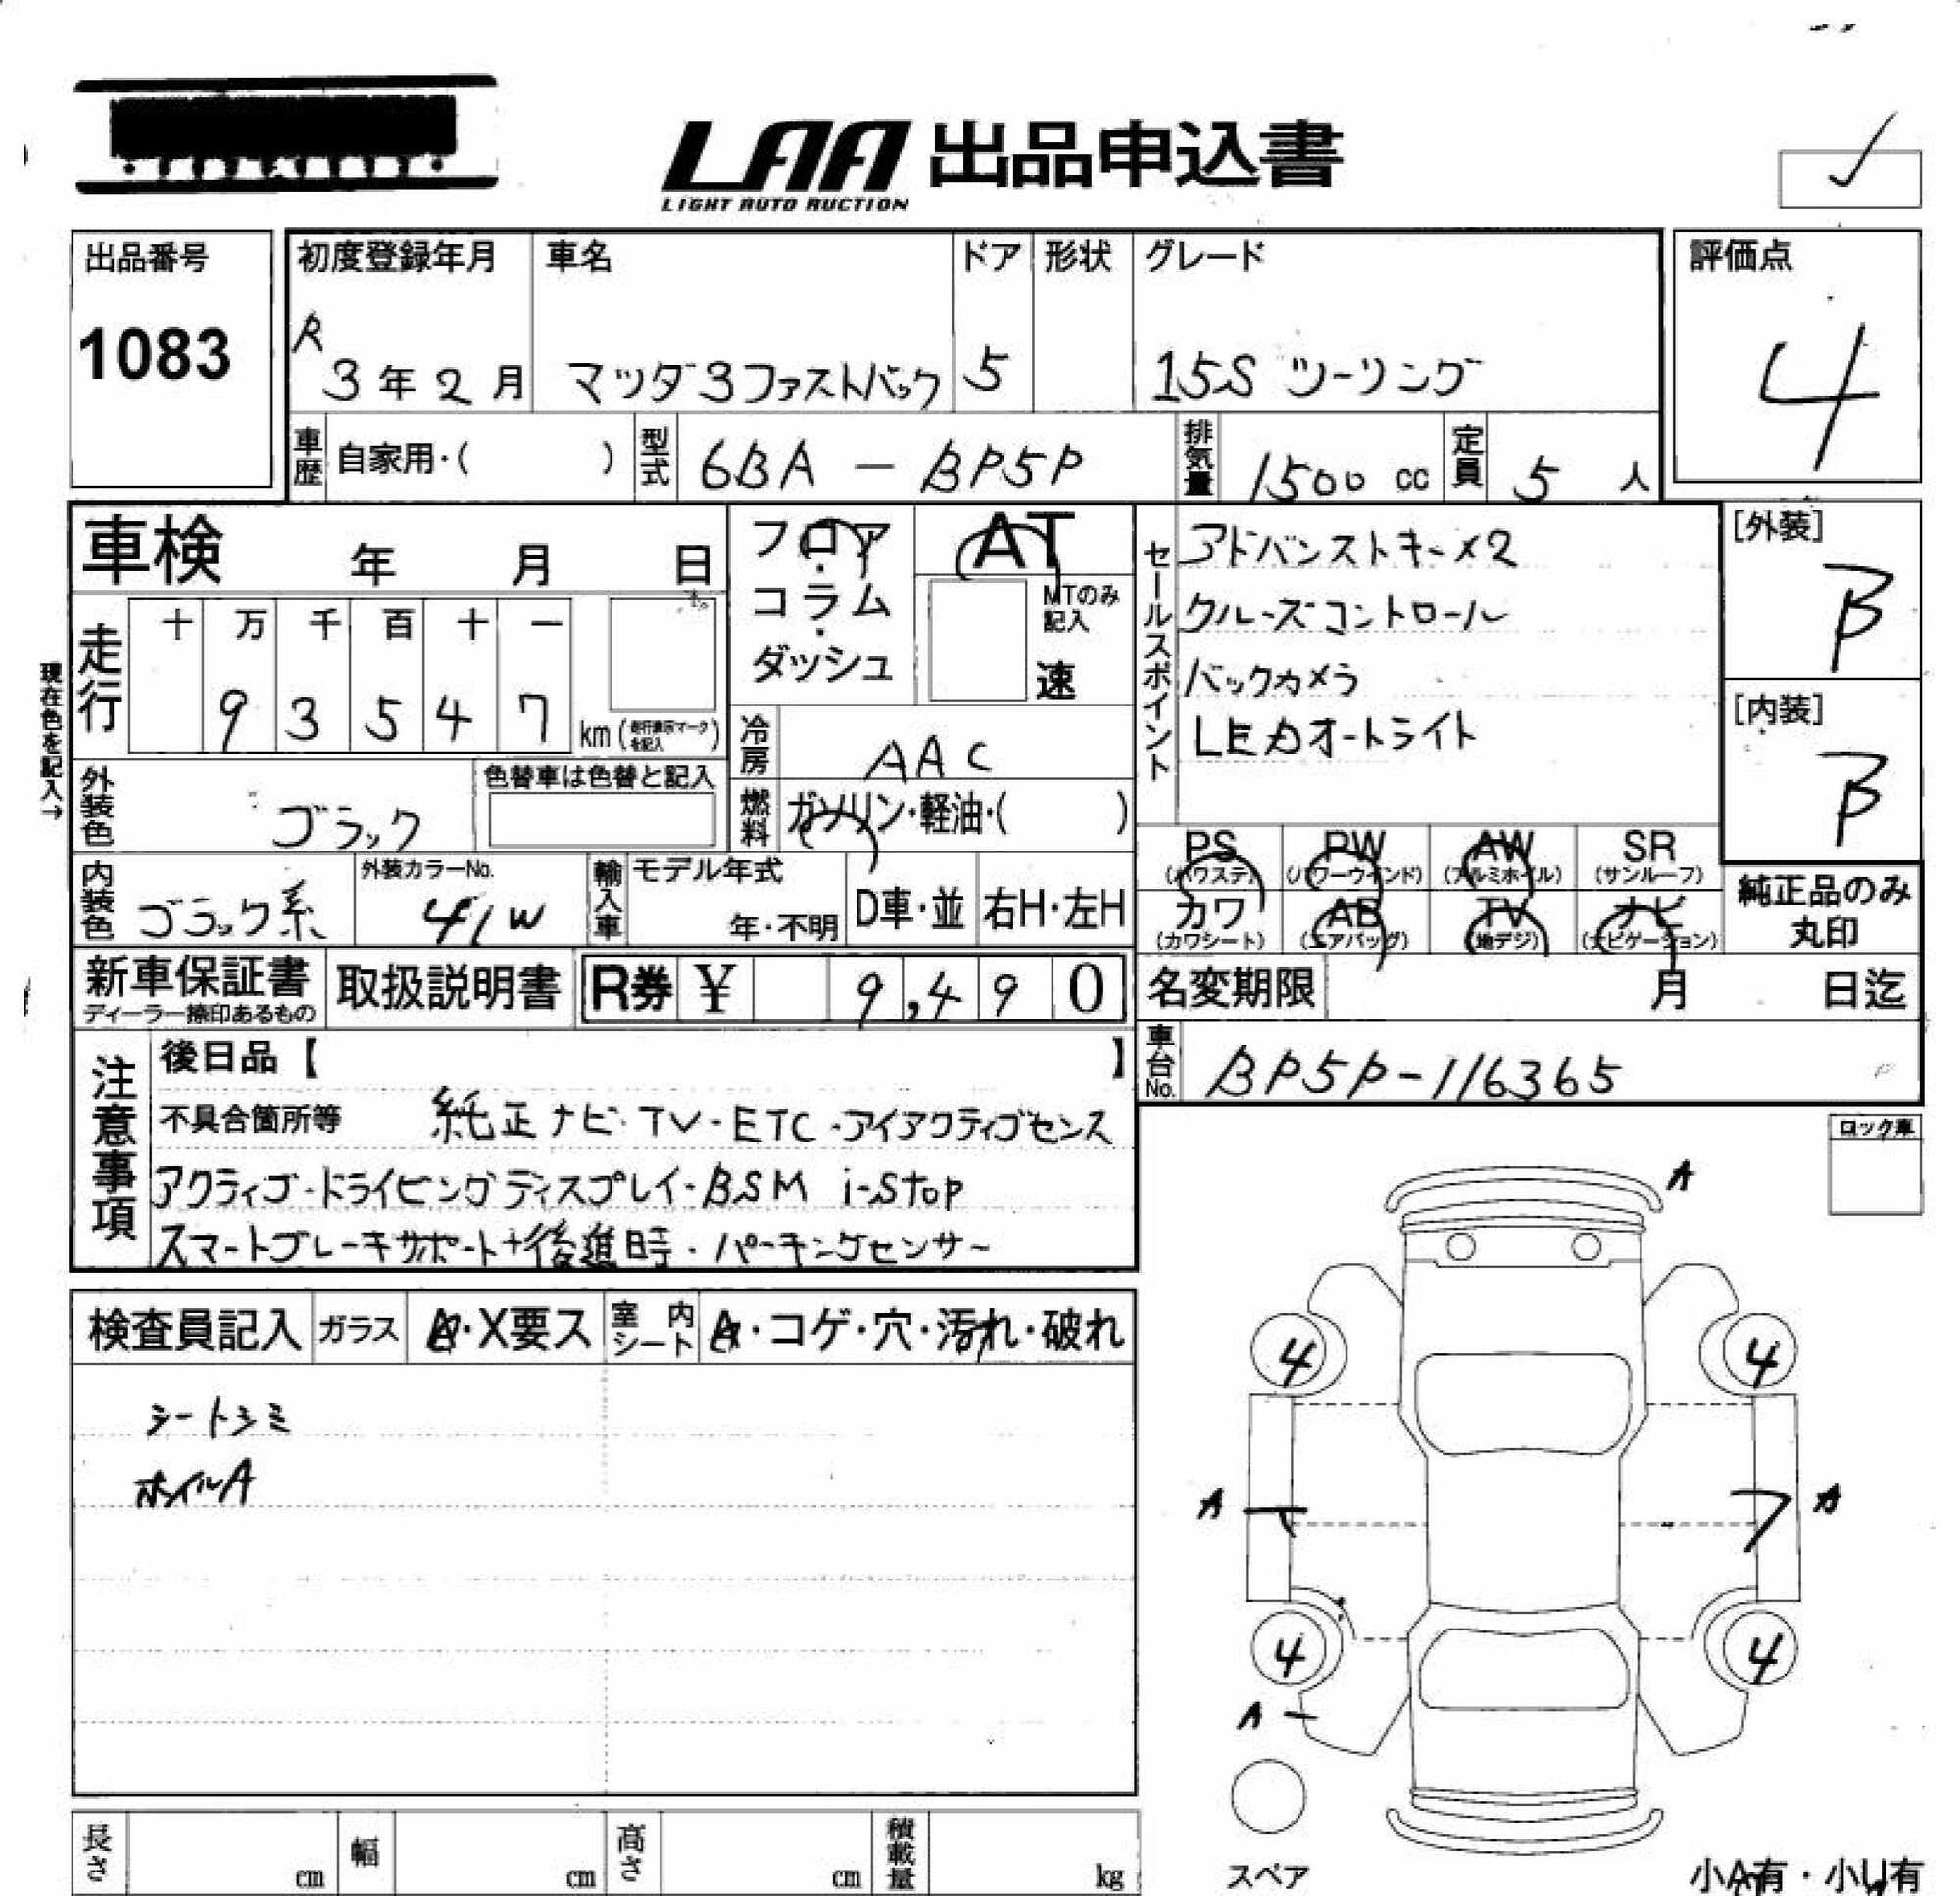 LAA 出品申込書
LIGHT AUTO AUCTION
出品番号
1083
初度登録年月
R
3年2月
車名
マツダ3ファストバック
ドア
5
形状
グレード
15S ツーリング
評価点
4
車歴 自家用・( )
型式 6BA - BP5P
排気量 1500 cc
定員 5 人
車検 年 月 日
フロア・コラム・ダッシュ
AT
MTのみ記入
速
セールスポイント
アドバンストキー×2
クルーズコントロール
バックカメラ
LEDオートライト
[外装]
B
[内装]
B
現在色を記入→
走行
十 万 千 百 十 一
9 3 5 4 7 km
冷房 AAC
外装色 ブラック
色替車は色替と記入
燃料 ガソリン・軽油・( )
内装色 ブラック系
外装カラーNo.
41W
輸入車
モデル年式
年・不明
D車・並
右H・左H
PS (パワステ)
PW (パワーウインド)
AW (アルミホイル)
SR (サンルーフ)
カワ (カワシート)
AB (エアバッグ)
TV (地デジ)
ナビ (ナビゲーション)
純正品のみ丸印
新車保証書
ディーラー捺印あるもの
取扱説明書
R券 ¥ 9,490
名変期限 月 日迄
車台No. BP5P-116365
注意事項
後日品【 】
不具合箇所等 純正ナビ・TV・ETC・アイアクティブセンス
アクティブ・ドライビングディスプレイ・BSM i-stop
スマートブレーキサポート+後進時・パーキングセンサー
ロック車
検査員記入
ガラス A・X要ス
室内シート A・コゲ・穴・汚れ・破れ
シートシミ
ホイルA
A
4 4
A A
4 4
A
スペア
小A有・小U有
長さ cm
幅 cm
高さ cm
積載量 kg